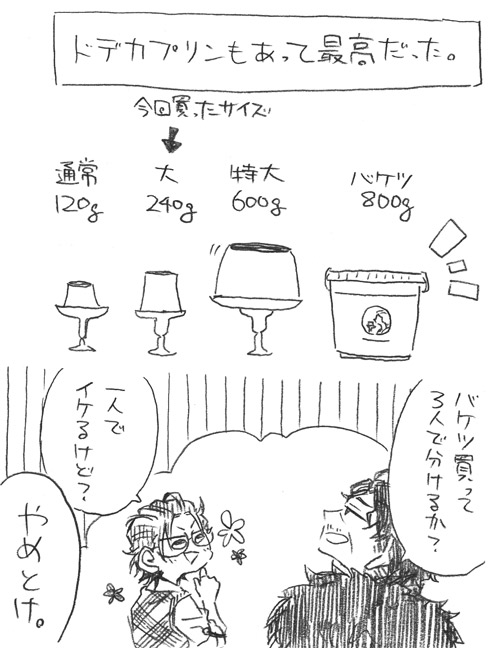 ドデカプリンもあって最高だった。
今回買ったサイズ
通常
120g
大
240g
特大
600g
バケツ
800g
バケツ買って
3人で分けるか?
一人で
イケるけど?
やめとけ。